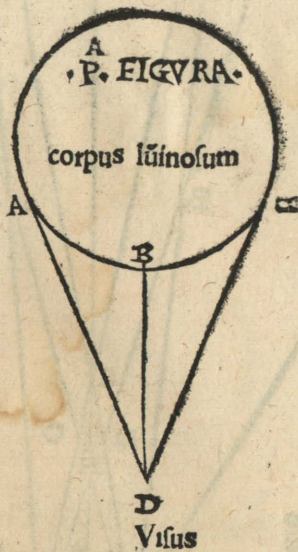 A
·P· FIGVRA·
corpus lũinoſum
A
B
D
Viſus